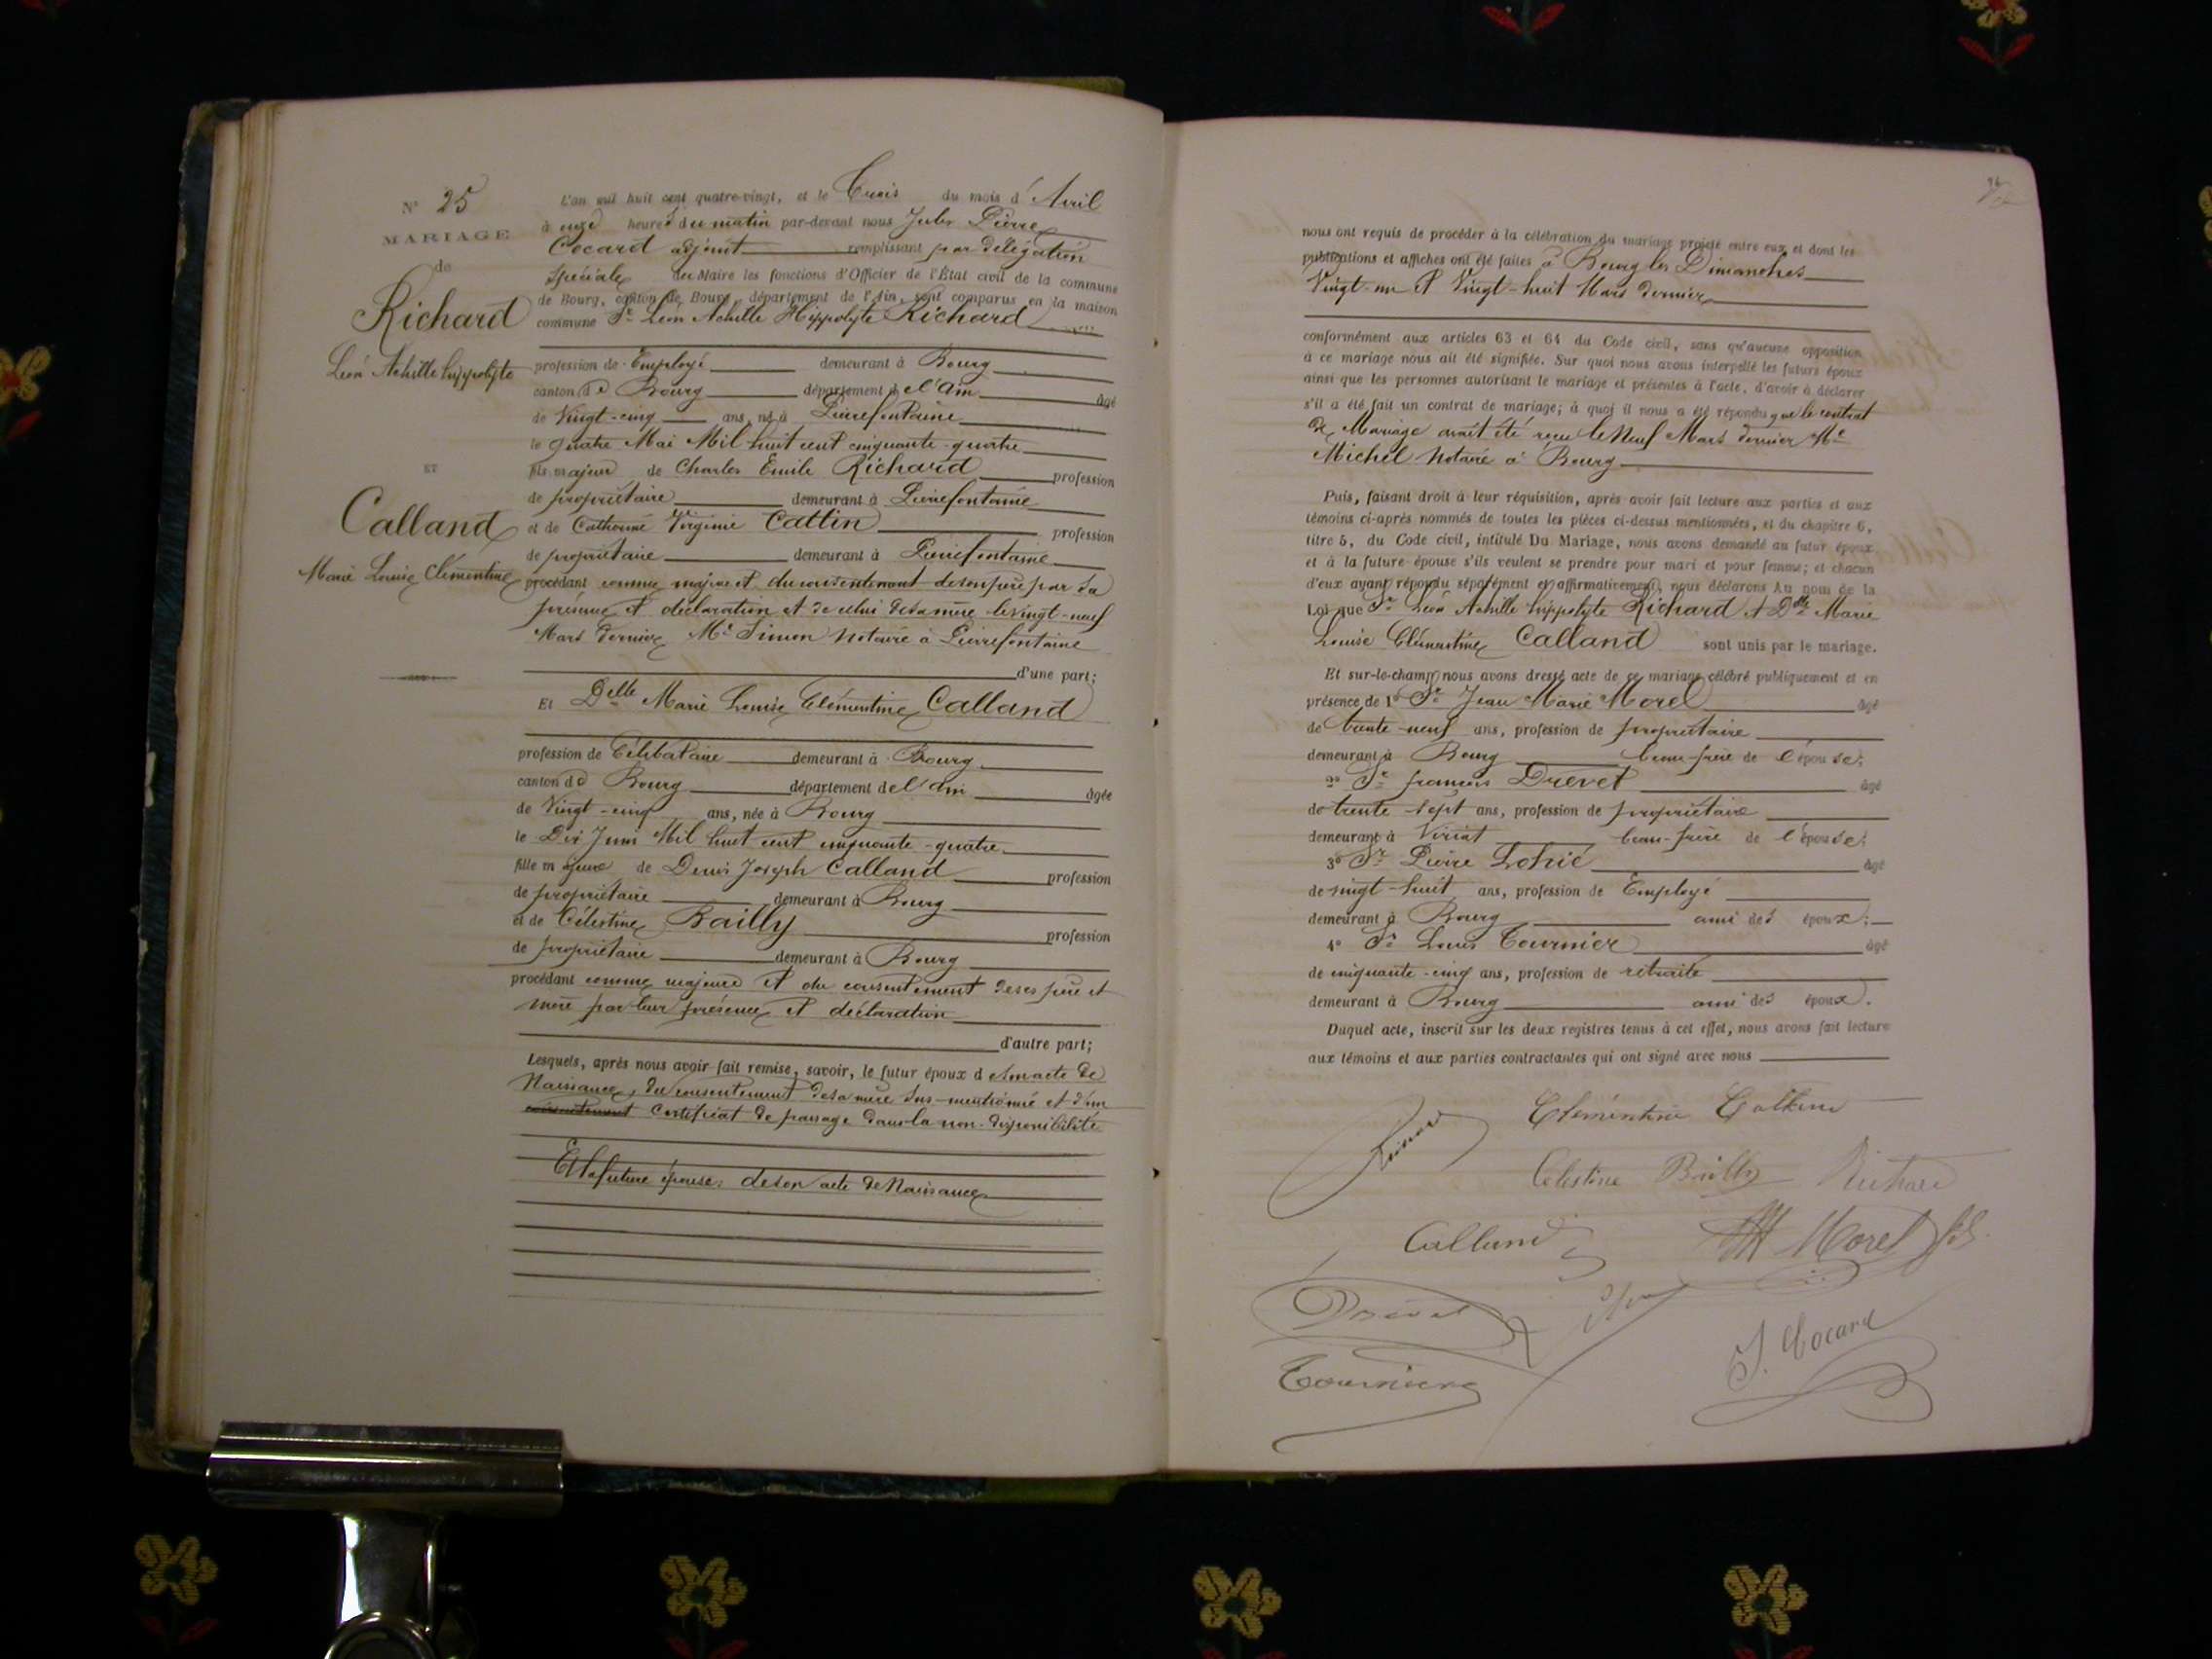 N° 25
MARIAGE
de
Richard
Léon Achille hippolyte
ET
Calland
Marie Louise Clémentine
L'an mil huit cent quatre-vingt, et le Trois du mois d'Avril
à onze heures du matin par-devant nous Jules Pierre
Cocard adjoint remplissant par délégation
Spéciale du Maire les fonctions d'Officier de l'État civil de la commune
de Bourg, canton de Bourg, département de l'Ain, sont comparus en la maison
commune Sr Léon Achille Hippolyte Richard
profession de Employé demeurant à Bourg
canton de Bourg département de l'Ain âgé
de Vingt-cinq ans, né à Pierrefontaine
le quatre Mai Mil huit cent cinquante-quatre
fils majeur de Charles Emile Richard profession
de propriétaire demeurant à Pierrefontaine
et de Catherine Virginie Cattin profession
de propriétaire demeurant à Pierrefontaine
procédant comme majeur et du consentement de son père par sa
présence et déclaration et de celui de sa mère le vingt-neuf
Mars dernier Me Simon Notaire à Pierrefontaine
d'une part;
Et Delle Marie Louise Clémentine Calland
profession de Célibataire demeurant à Bourg
canton de Bourg département de l'Ain âgée
de Vingt-cinq ans, née à Bourg
le Dix Juin Mil huit cent cinquante-quatre
fille majeure de Denis Joseph Calland profession
de propriétaire demeurant à Bourg
et de Célestine Bailly profession
de propriétaire demeurant à Bourg
procédant comme majeure et du consentement de ses père et
mère par leur présence et déclaration
d'autre part;
Lesquels, après nous avoir fait remise, savoir, le futur époux de son acte de
Naissance, du consentement de sa mère sus-mentionné et d'un
consentement certificat de passage dans la non-disponibilité
Et la future épouse: de son acte de Naissance
nous ont requis de procéder à la célébration du mariage projeté entre eux et dont les
publications et affiches ont été faites à Bourg les Dimanches
Vingt-un et Vingt-huit Mars dernier
conformément aux articles 63 et 64 du Code civil, sans qu'aucune opposition
à ce mariage nous ait été signifiée. Sur quoi nous avons interpellé les futurs époux
ainsi que les personnes autorisant le mariage et présentes à l'acte, d'avoir à déclarer
s'il a été fait un contrat de mariage; à quoi il nous a été répondu que le contrat
de Mariage avait été reçu le Neuf Mars dernier Me
Michel Notaire à Bourg
Puis, faisant droit à leur réquisition, après avoir fait lecture aux parties et aux
témoins ci-après nommés de toutes les pièces ci-dessus mentionnées, et du chapitre 6,
titre 5, du Code civil, intitulé Du Mariage, nous avons demandé au futur époux
et à la future épouse s'ils veulent se prendre pour mari et pour femme; et chacun
d'eux ayant répondu séparément et affirmativement, nous déclarons Au nom de la
Loi que Sr Léon Achille hippolyte Richard et Delle Marie
Louise Clémentine Calland sont unis par le mariage.
Et sur-le-champ nous avons dressé acte de ce mariage célébré publiquement et en
présence de 1° Sr Jean Marie Morel âgé
de trente-neuf ans, profession de propriétaire
demeurant à Bourg beau-frère de l'épouse;
2° Sr françois Drevet âgé
de trente-sept ans, profession de propriétaire
demeurant à Viriat beau-frère de l'épouse;
3° Sr Pierre âgé
de vingt-huit ans, profession de Employé
demeurant à Bourg ami des époux;
4° Sr Louis Tournier âgé
de cinquante-cinq ans, profession de retraité
demeurant à Bourg ami des époux.
Duquel acte, inscrit sur les deux registres tenus à cet effet, nous avons fait lecture
aux témoins et aux parties contractantes qui ont signé avec nous
Richard Clémentine Calland
Célestine Bailly Richard
Calland Morel fils
Drevet
Tournier J. Cocard